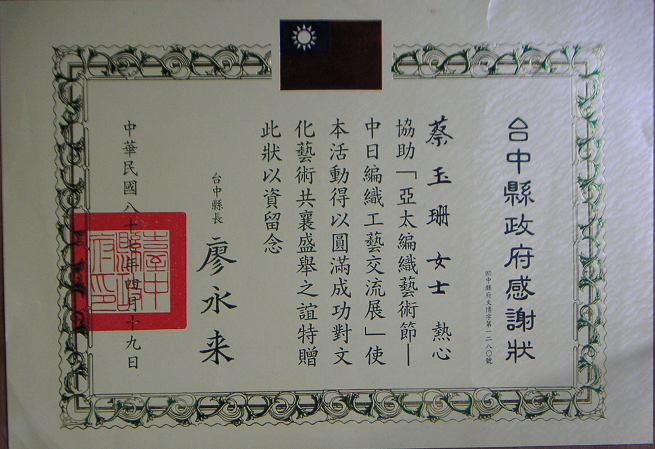 台中縣政府感謝狀
蔡玉珊女士 熱心
協助「亞太編織藝術節—
中日編織工藝交流展」使
本活動得以圓滿成功對文
化藝術共襄盛舉之誼特贈
此狀以資留念
台中縣長 廖永来
中華民國八十 年四月十九日
臺中縣政府印